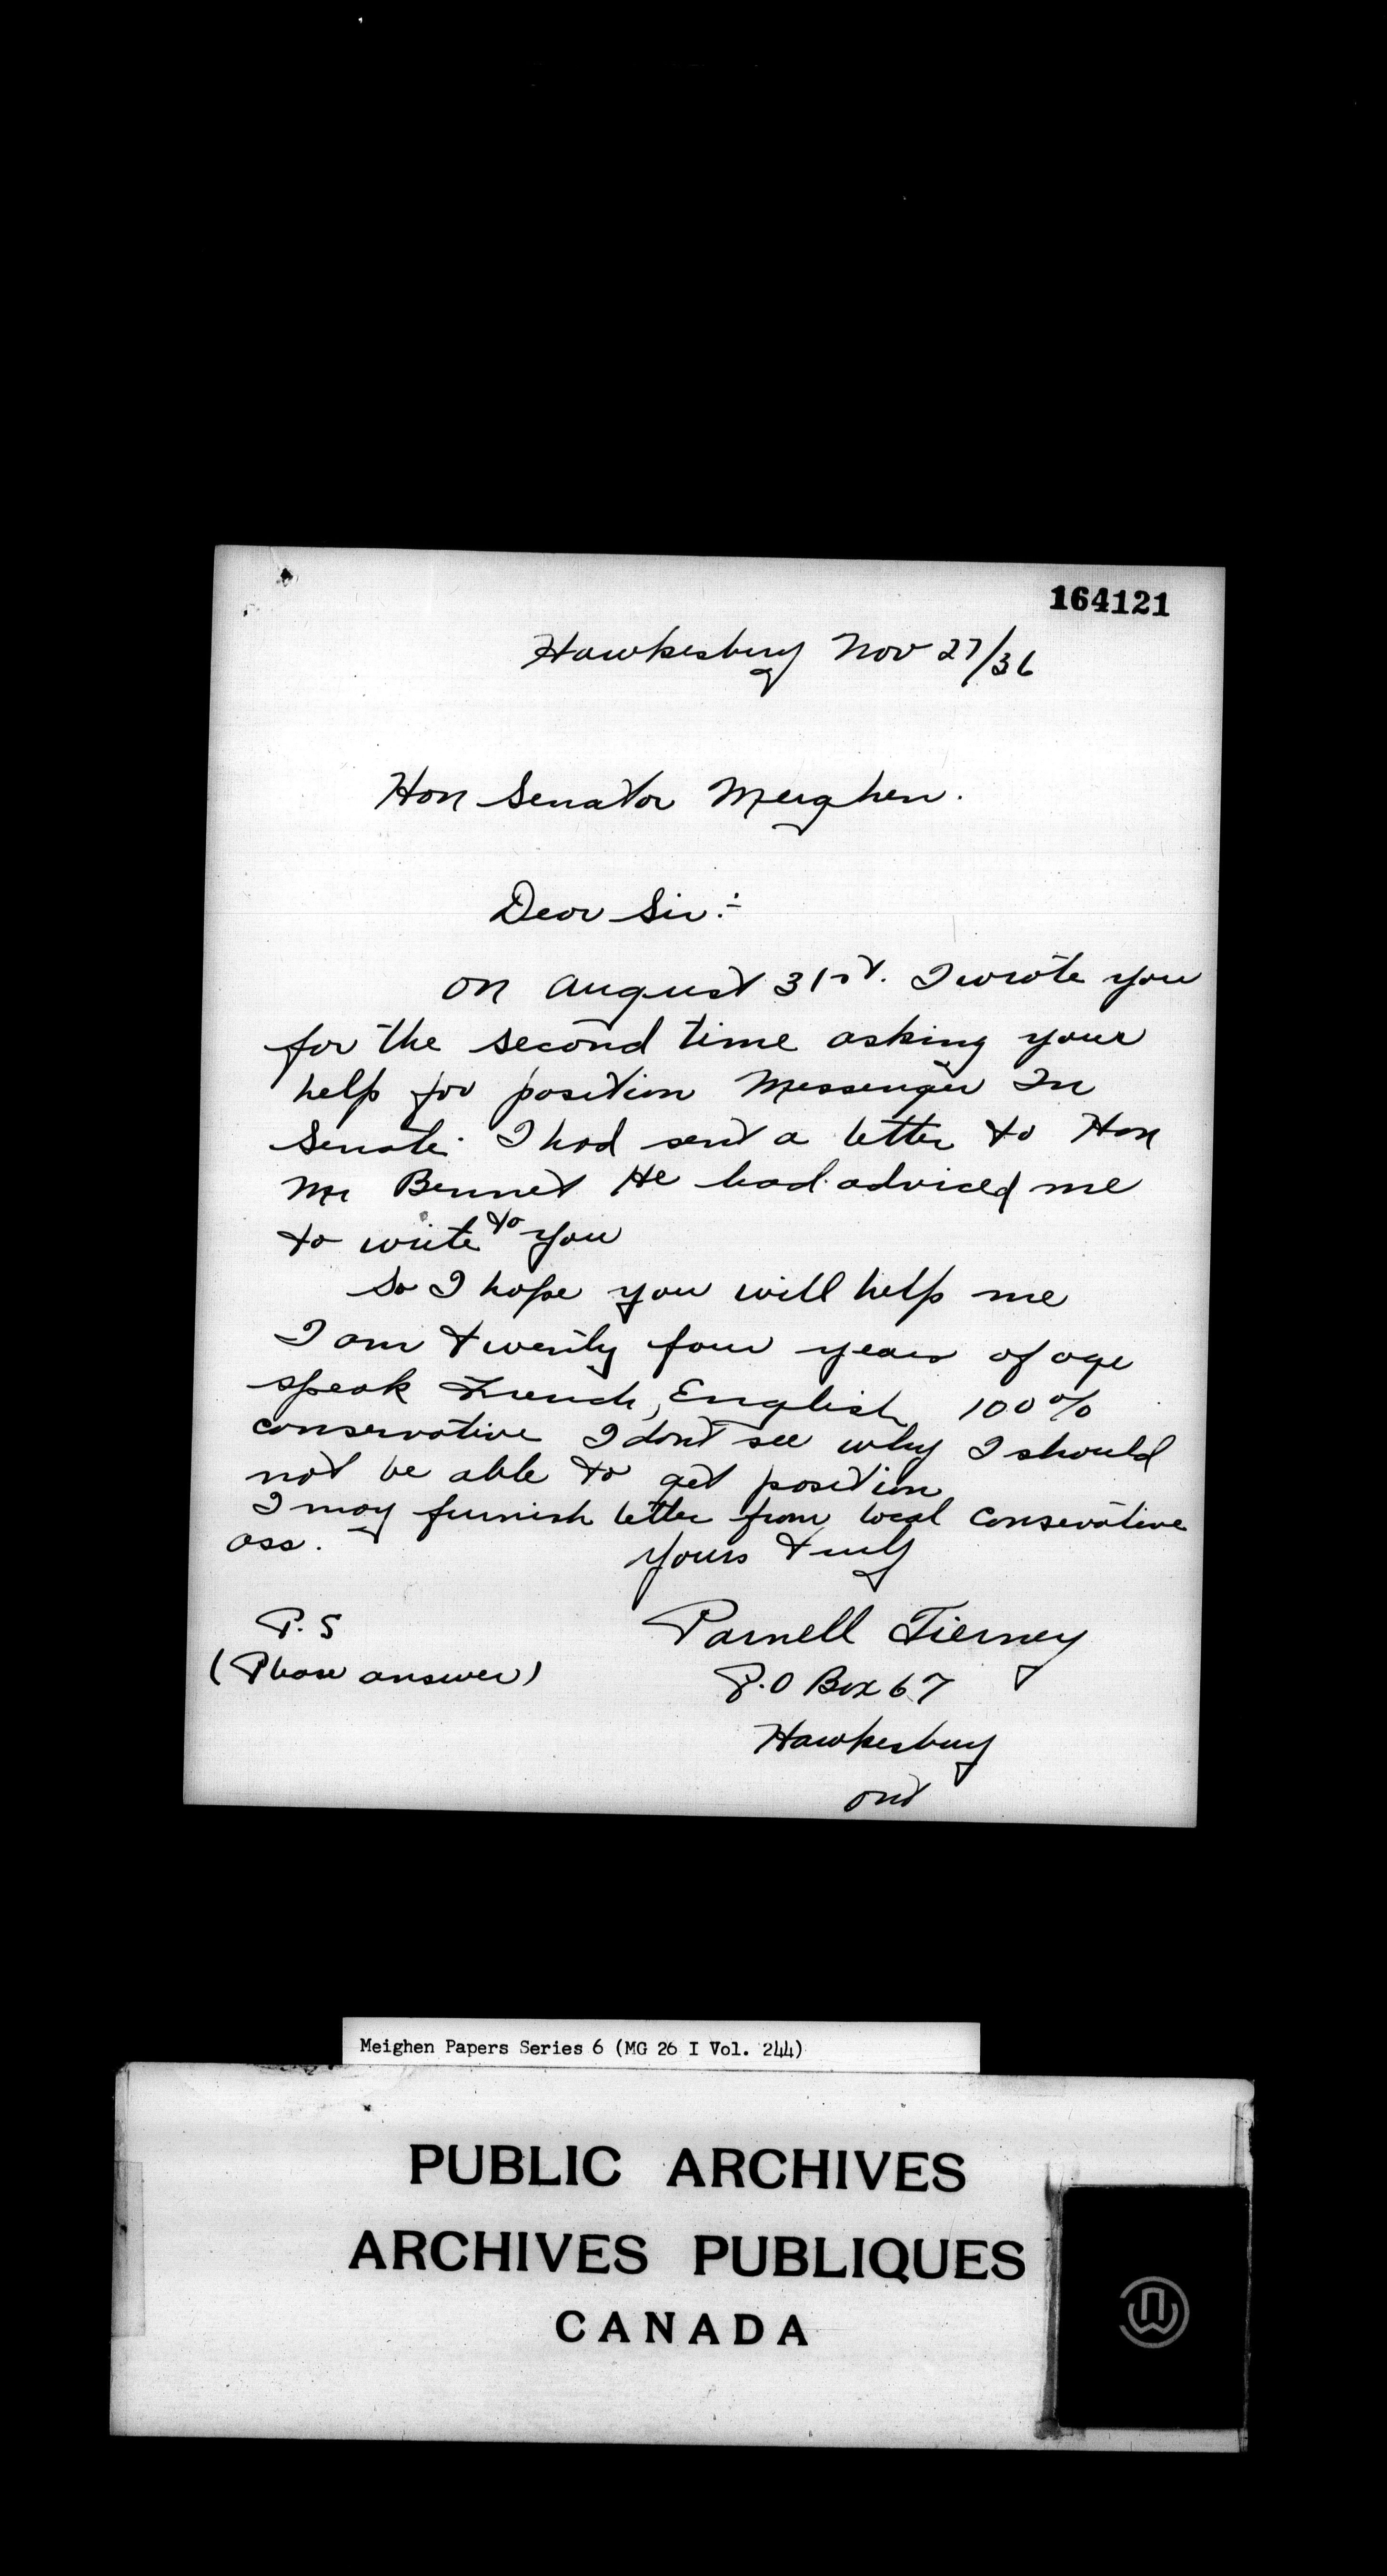 164121
Hawkesbury Nov 27/36
Hon Senator Meighen.
Dear Sir:-
On August 31st. I wrote you
for the second time asking your
help for position Messenger In
Senate. I had sent a letter to Hon
Mr Bennet He had adviced me
to write to you
So I hope you will help me
I am twenty four years of age
speak French, English 100%
conservative I dont see why I should
not be able to get position
I may furnish letter from local conservative
ass.
Yours truly
Parnell Tierney
P.O Box 67
Hawkesbury
Ont
P.S
(Please answer)
Meighen Papers Series 6 (MG 26 I Vol. 244)
PUBLIC ARCHIVES
ARCHIVES PUBLIQUES
CANADA